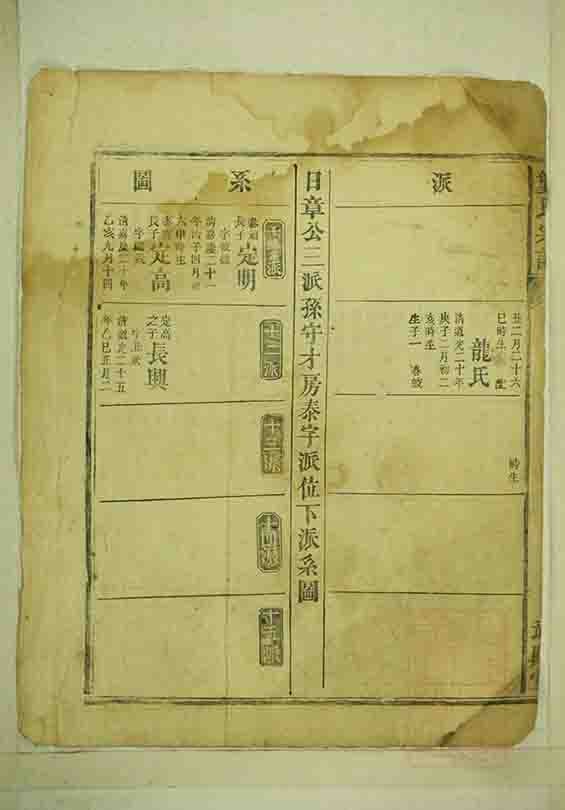 派
丑二月二十六
巳時生
龍氏
清道光二十年
庚子二月初二
亥時生
生子一
時生
日章公三派孫守才房泰字派位下派系圖
系圖
十一派
長子定明
清嘉慶二十一
年丙子四月
長子定高
清嘉慶二十年
乙亥九月十四
十二派
定高之子長興
清道光二十五
年乙巳正月二
十三派
十四派
十五派